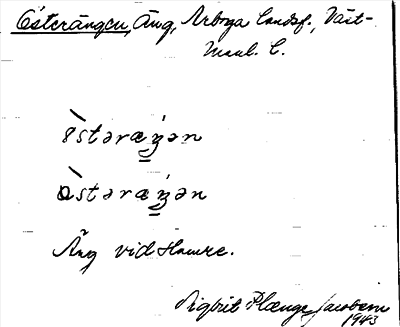 Österängen, Äng, Arboga landsf., Väst-
manl. l.
östəræŋən
östəræŋən
Äng vid Hamre.
Sigbrit Plænge Jacobson
1943